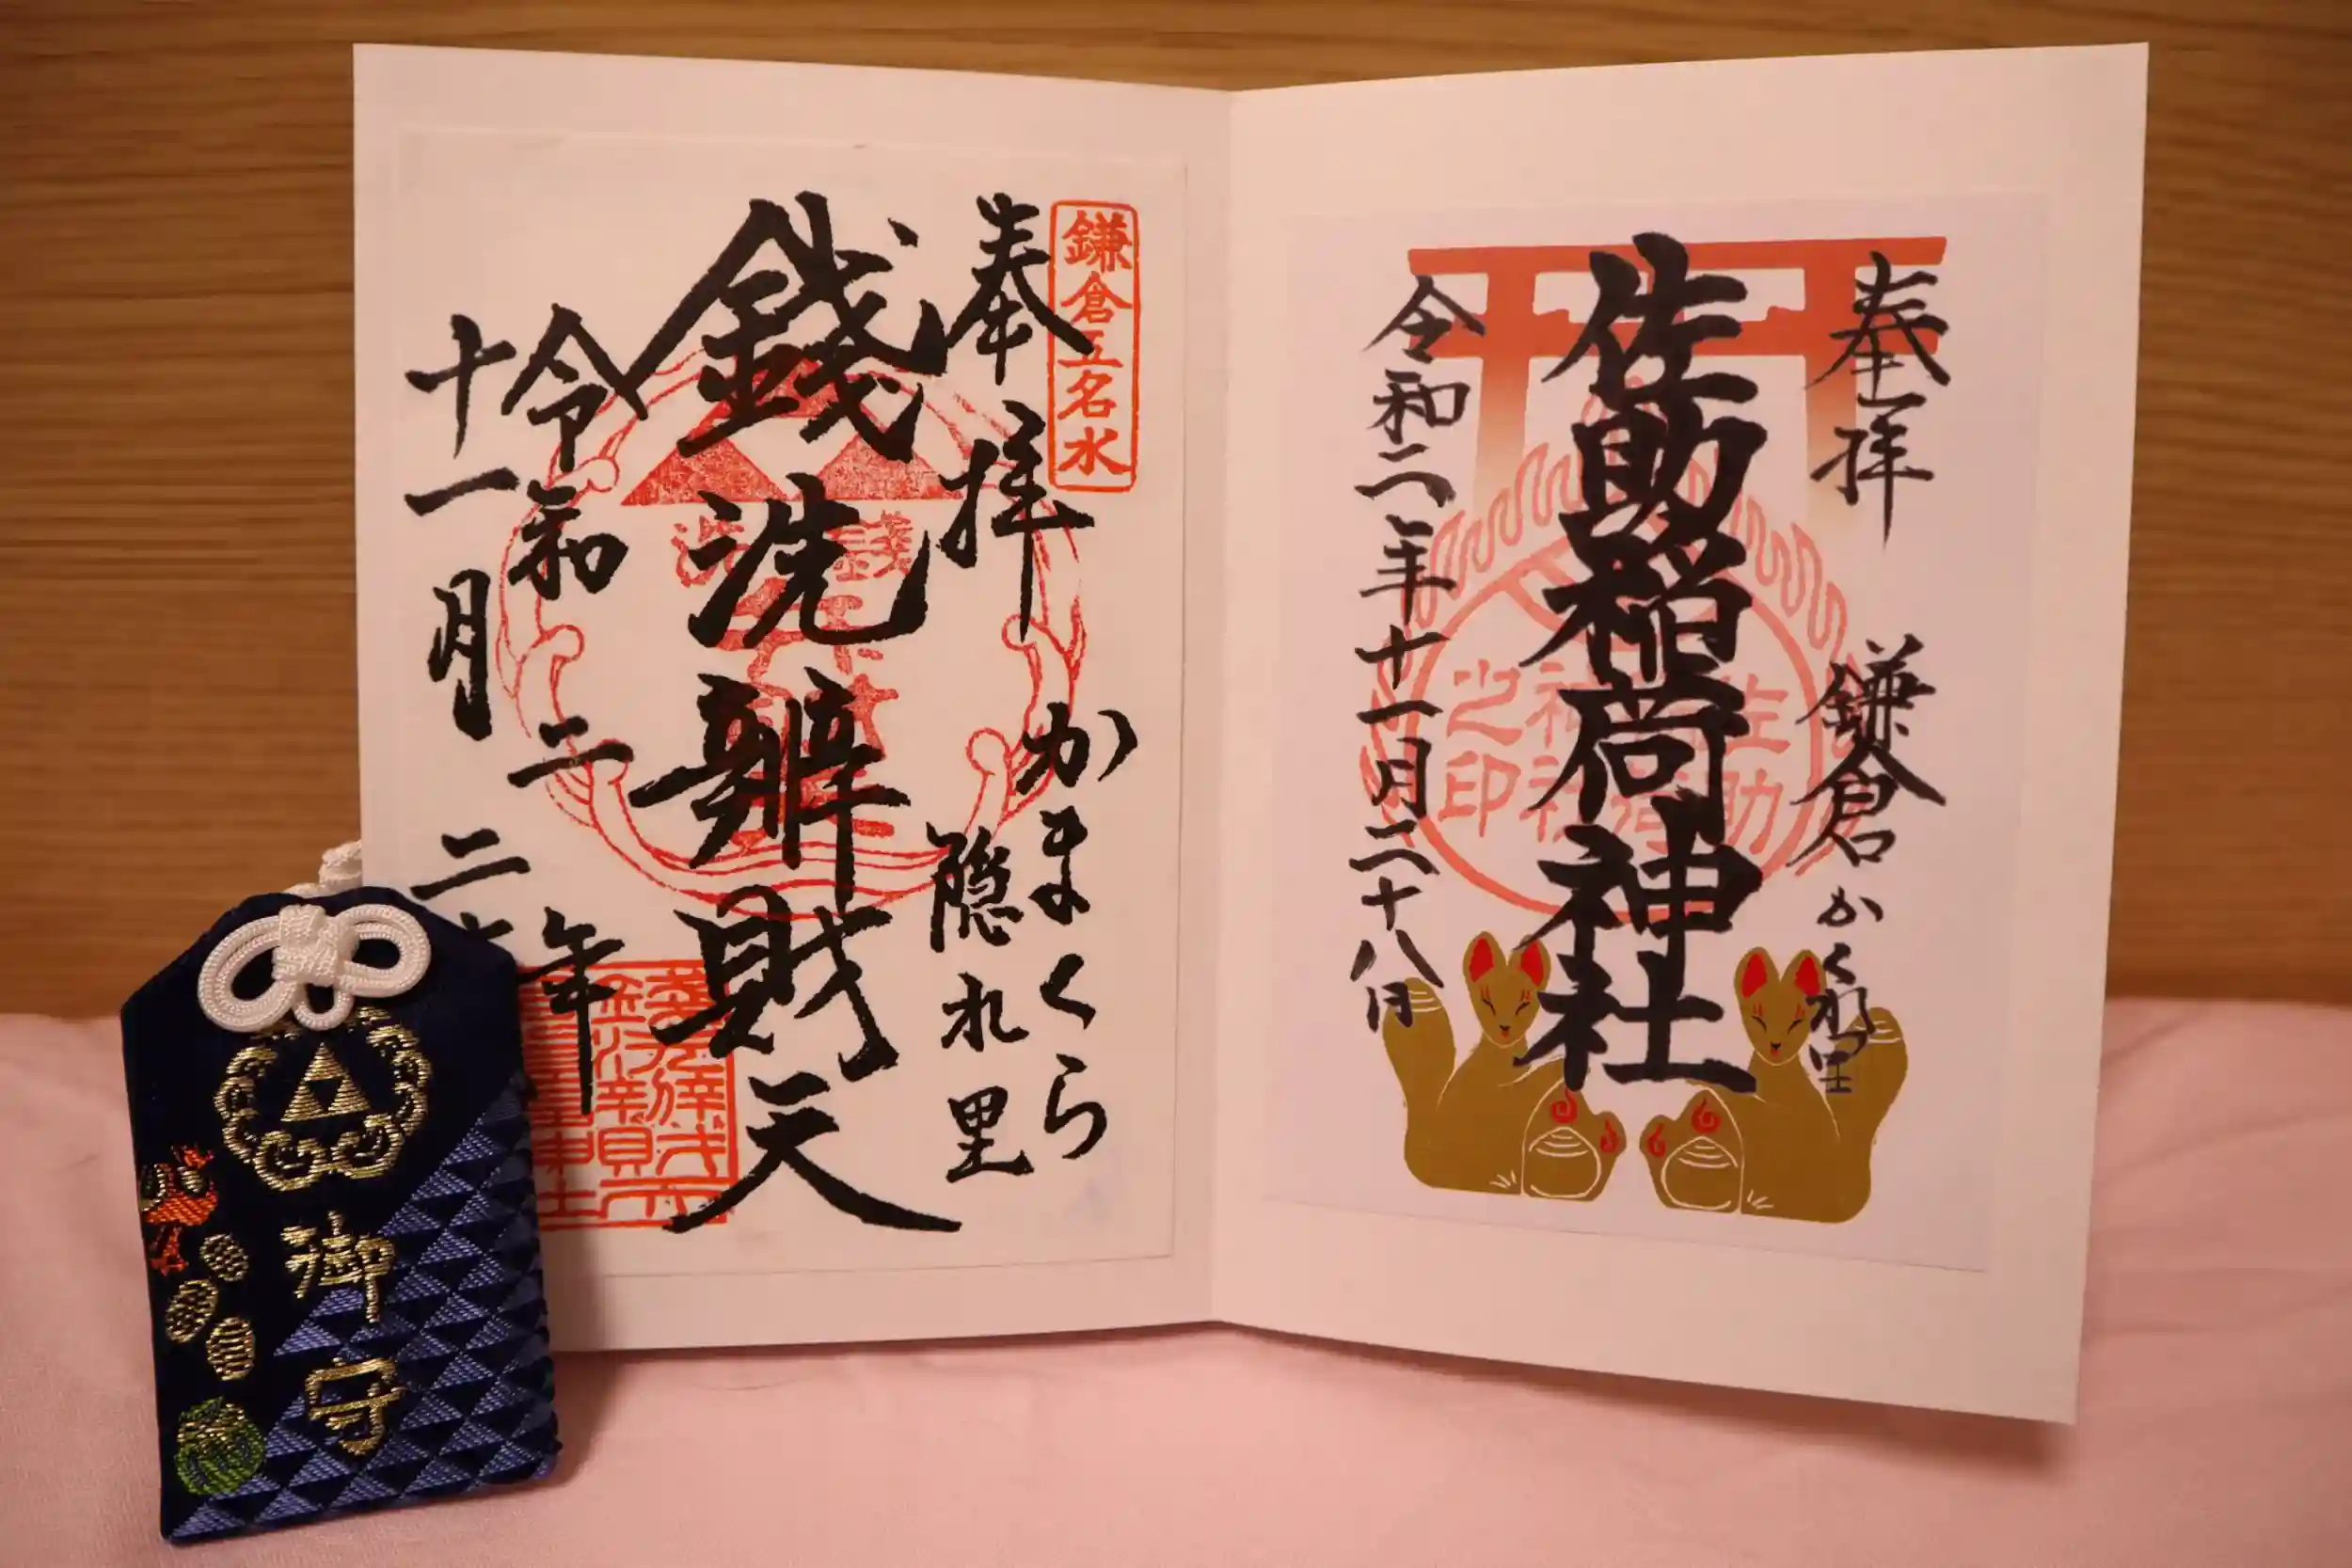 奉拝 鎌倉かくれ里
佐助稲荷神社
令和二年十一月二十八日
佐助
稲荷
神社
之印
鎌倉五名水
奉拝
かまくら
隠れ里
銭洗辨財天
令和二年
十一月二
銭洗
御守